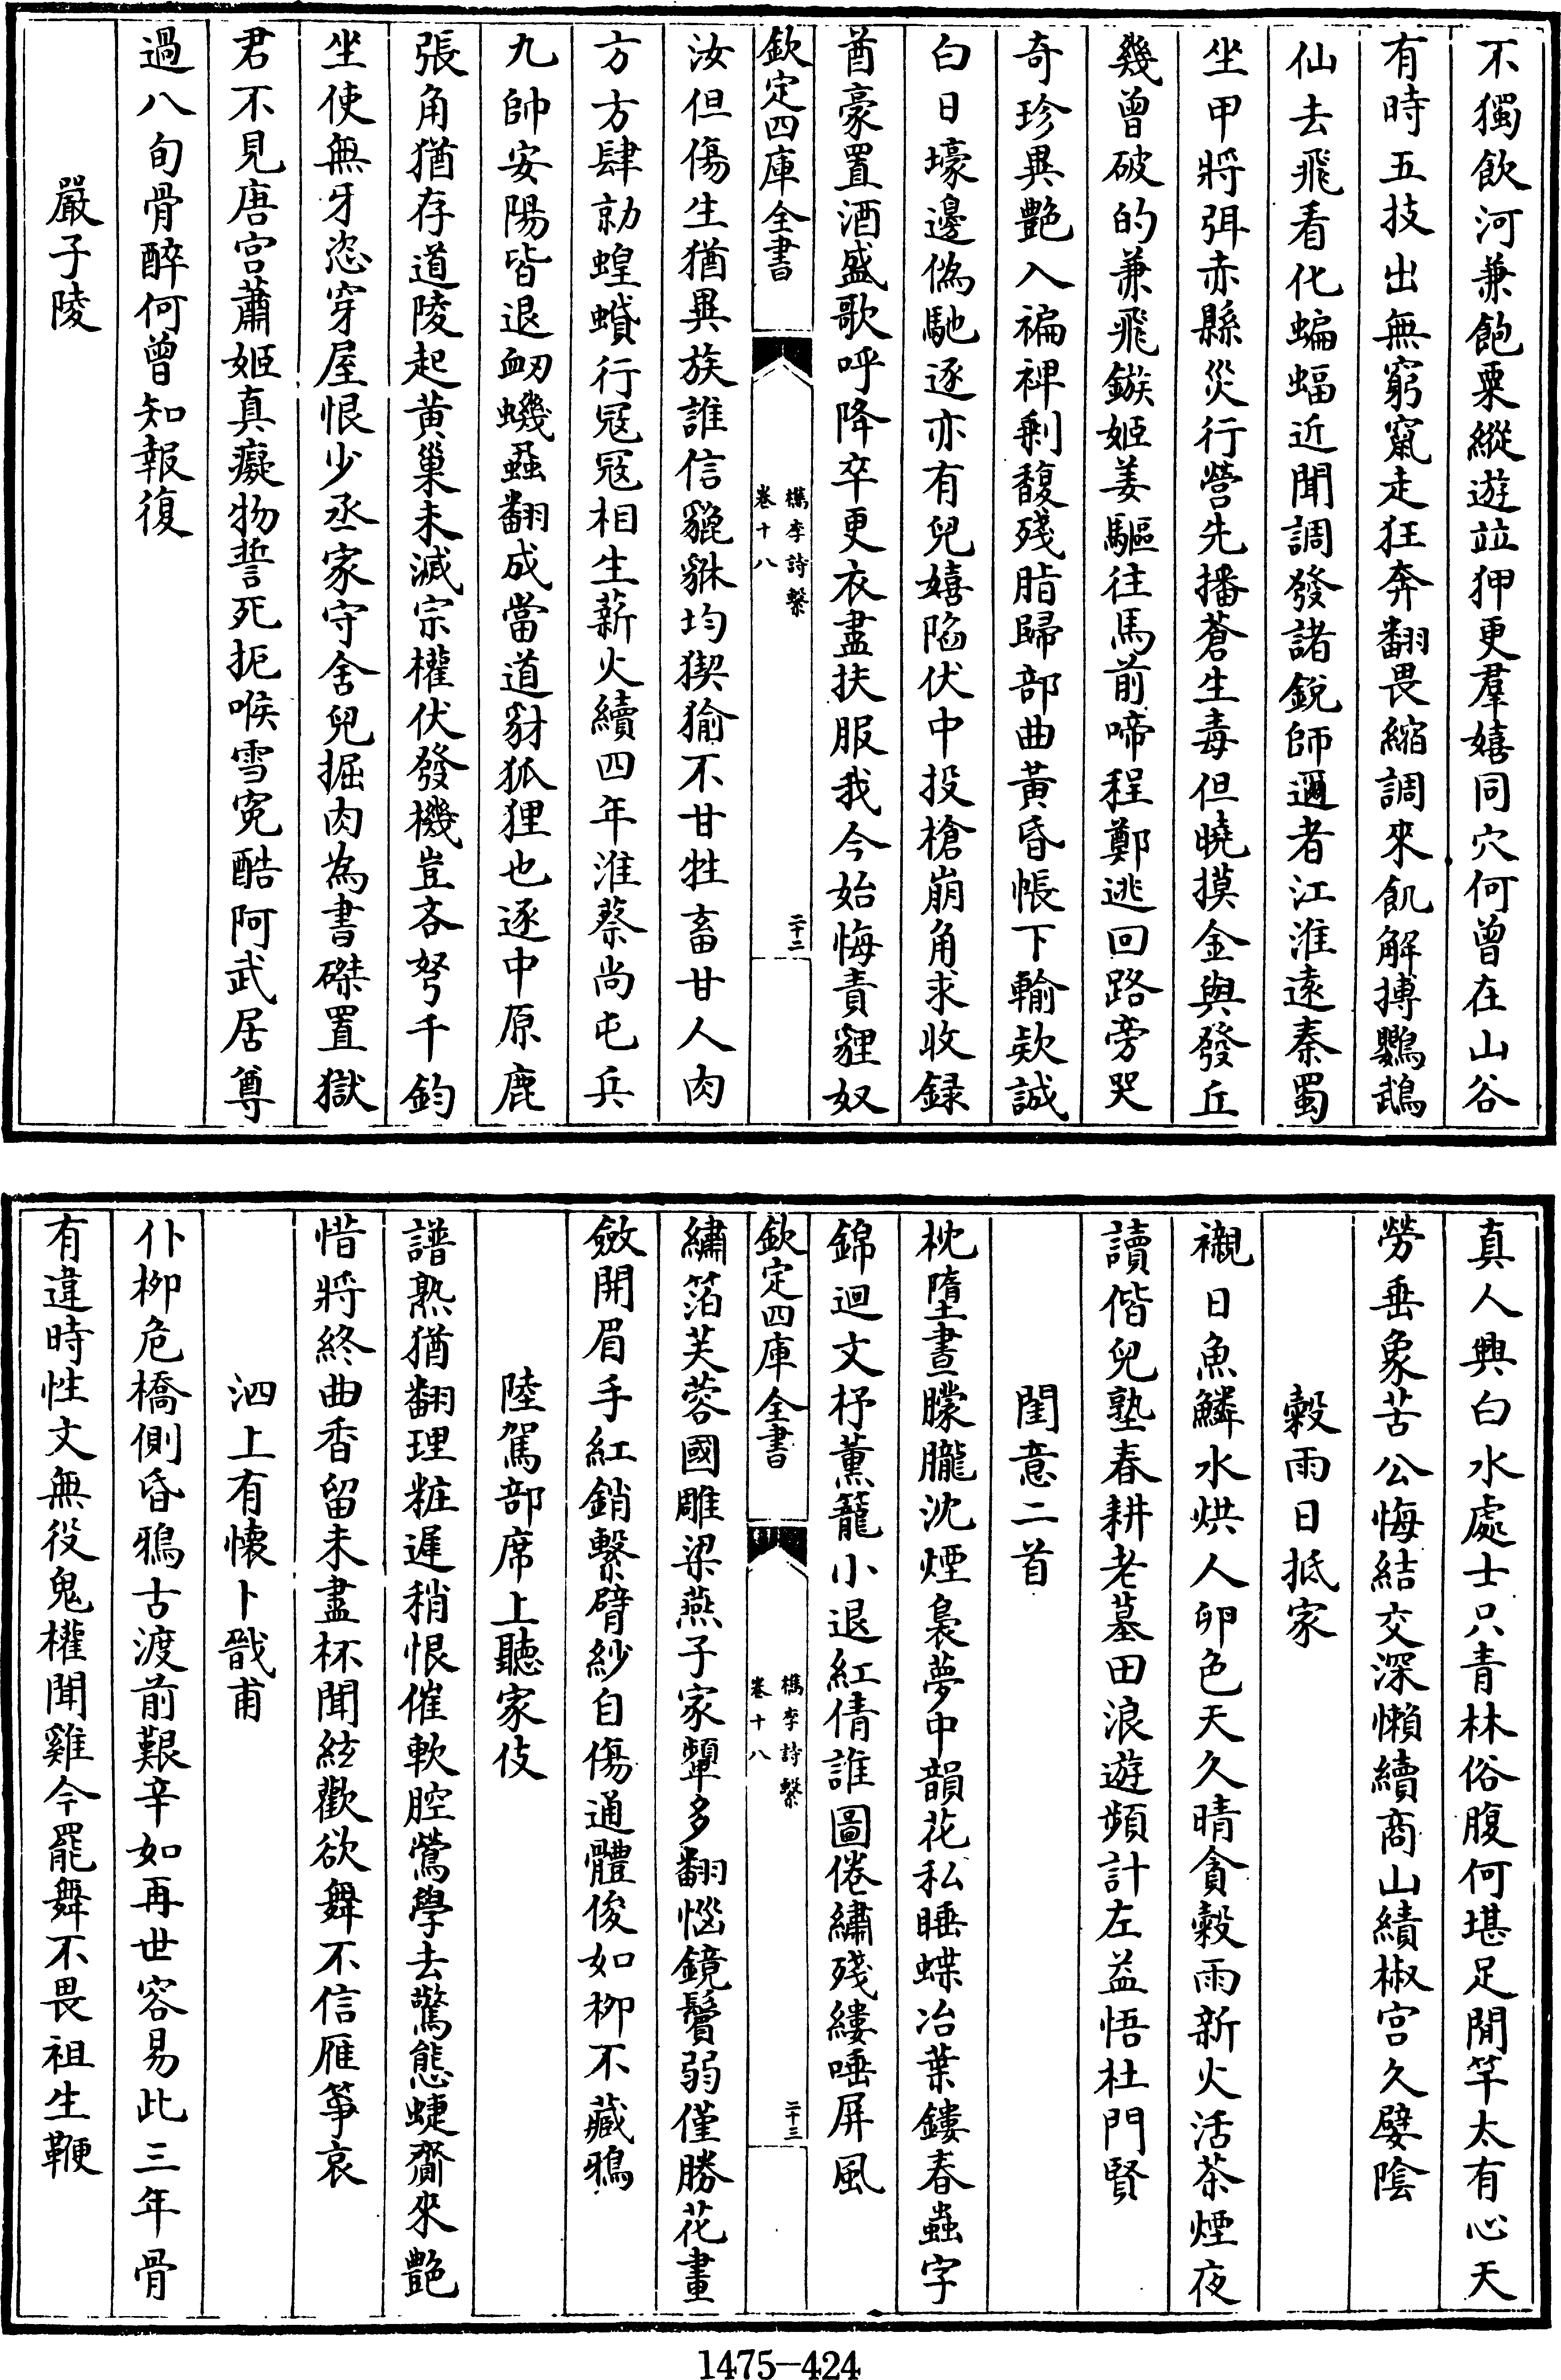 不獨飲河兼飽粟縱遊竝狎更羣嬉同穴何曾在山谷
有時五技出無窮竄走狂奔翻畏縮調來飢解搏鸚鵡
仙去飛看化蝙蝠近聞調發諸銳師邇者江淮遠秦蜀
坐甲將弭赤縣災行營先播蒼生毒但曉摸金與發丘
幾曾破的兼飛鏃姬姜驅往馬前啼程鄭逃回路旁哭
奇珍異艷入褊裨剩馥殘脂歸部曲黃昏帳下輸欵誠
白日壕邊偽馳逐亦有兒嬉陷伏中投槍崩角求收録
酋豪置酒盛歌呼降卒更衣盡扶服我今始悔責貍奴
欽定四庫全書
檇李詩繫
卷十八
二十二
汝但傷生猶異族誰信貔貅均猰㺄不甘牲畜甘人肉
方方肆勍蝗蟘行冦冦相生薪火續四年淮蔡尚屯兵
九帥安陽皆退衂蟣蝨翻成當道豺狐狸也逐中原鹿
張角猶存道陵起黄巢未滅宗權伏發機豈吝弩千鈞
坐使無牙恣穿屋恨少丞家守舍兒掘肉為書磔置獄
君不見唐宫蕭姬真癡物誓死扼喉雪寃酷阿武居尊
過八旬骨醉何曾知報復
嚴子陵
真人興白水處士只青林俗腹何堪足閒竿太有心天
勞垂象苦公悔結交深懶續商山績椒宫久嬖陰
穀雨日抵家
襯日魚鱗水烘人卵色天久晴貪穀雨新火活茶煙夜
讀偕兒塾春耕老墓田浪遊頻計左益悟杜門賢
閨意二首
枕墮晝朦朧沈煙裊夢中韻花私睡蝶冶葉鏤春蟲字
錦迴文杼薰籠小退紅倩誰圖倦繡殘縷唾屏風
欽定四庫全書
檇李詩繫
卷十八
二十三
繡箔芙蓉國雕梁燕子家顰多翻惱鏡鬢弱僅勝花畫
斂開眉手紅銷繫臂紗自傷通體俊如柳不藏鴉
陸駕部席上聽家伎
譜熟猶翻理粧遲稍恨催軟腔鶯學去驚態蜨齎來艷
惜將終曲香留未盡杯聞絃歡欲舞不信雁箏哀
泗上有懐卜戩甫
仆柳危橋側昏鴉古渡前艱辛如再世容易此三年骨
有違時性文無役鬼權聞雞今罷舞不畏祖生鞭
1475—424